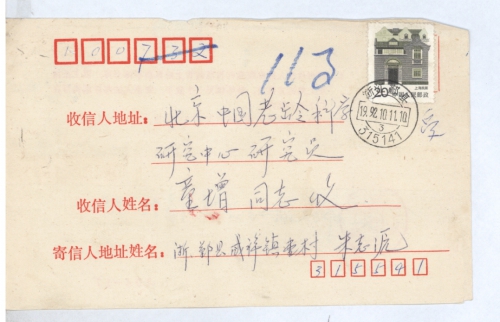 100732
113
上海民居
20 中国邮政
1992.10.11.10
3
315141
收信人地址：北京 中国老龄科学
研究中心 研究员
收信人姓名：童增 同志 收
寄信人地址姓名：浙.鄞县咸祥镇 村 朱志
315141